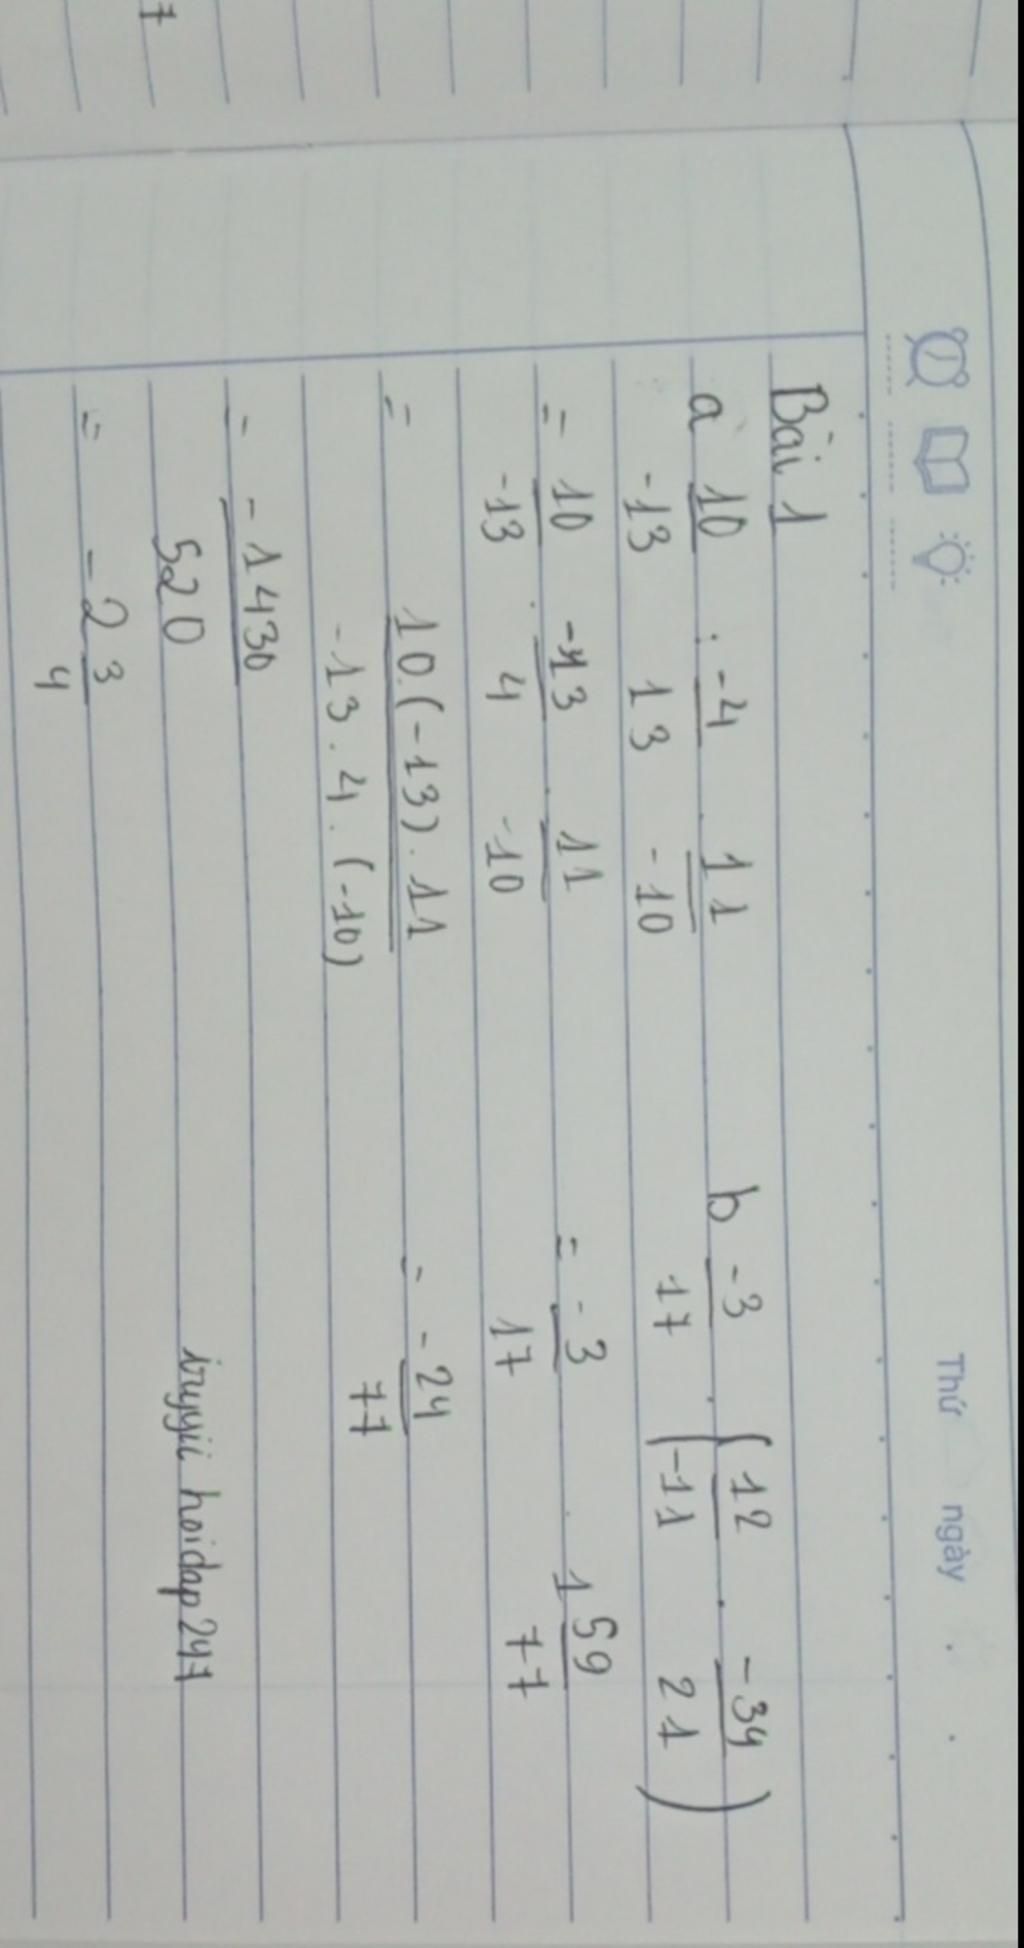 Thứ ngày
Bài 1
a 10/-13 : -4/13 . 11/-10
= 10/-13 . -13/4 . 11/-10
= 10.(-13).11/-13.4.(-10)
= -1430/520
= -2 3/4
b -3/17 . (12/-11 . -34/21)
= -3/17 . 1 59/77
= -24/77
hoidap247
7